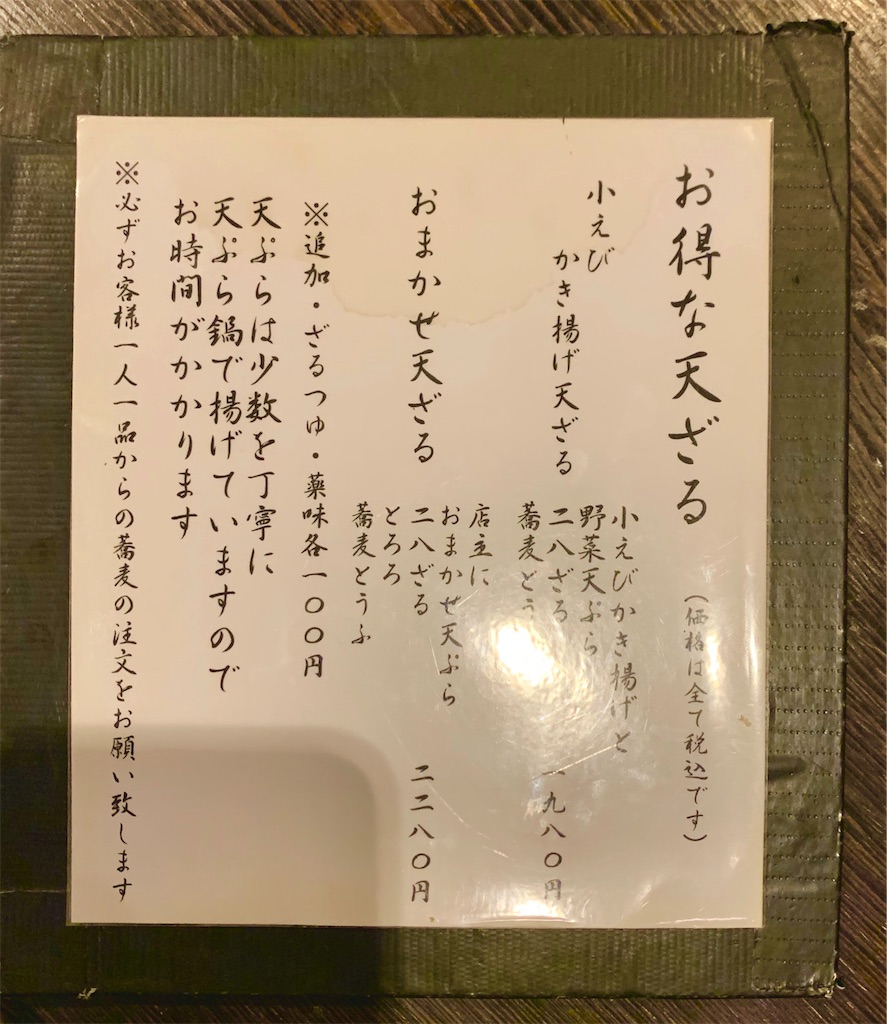 お得な天ざる
(価格は全て税込です)
小えび
かき揚げ天ざる
小えびかき揚げと
野菜天ぷら
二八ざる
蕎麦どう
一九八〇円
おまかせ天ざる
店主に
おまかせ天ぷら
二八ざる
とろろ
蕎麦とうふ
二二八〇円
※追加・ざるつゆ・薬味各一〇〇円
天ぷらは少数を丁寧に
天ぷら鍋で揚げていますので
お時間がかかります
※必ずお客様一人一品からの蕎麦の注文をお願い致します